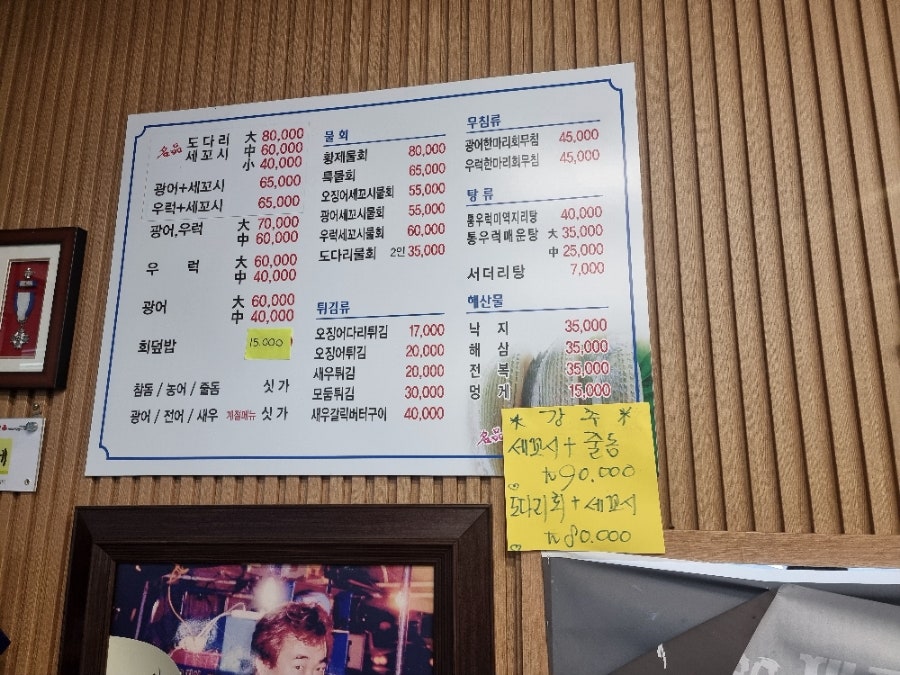 名品 도다리 大 80,000
세꼬시 中 60,000
小 40,000
광어+세꼬시 65,000
우럭+세꼬시 65,000
광어,우럭 大 70,000
中 60,000
우 럭 大 60,000
中 40,000
광어 大 60,000
中 40,000
회덮밥 15.000
참돔 / 농어 / 줄돔 싯 가
광어 / 전어 / 새우 계절메뉴 싯 가
물 회
황제물회 80,000
특물회 65,000
오징어세꼬시물회 55,000
광어세꼬시물회 55,000
우럭세꼬시물회 60,000
도다리물회 2인 35,000
튀김류
오징어다리튀김 17,000
오징어튀김 20,000
새우튀김 20,000
모둠튀김 30,000
새우갈릭버터구이 40,000
무침류
광어한마리회무침 45,000
우럭한마리회무침 45,000
탕 류
통우럭미역지리탕 40,000
통우럭매운탕 大 35,000
中 25,000
서더리탕 7,000
해산물
낙 지 35,000
해 삼 35,000
전 복 35,000
멍 게 15,000
名品
* 강 추 *
세꼬시 + 줄돔
₩90.000
도다리회 + 세꼬시
₩80.000